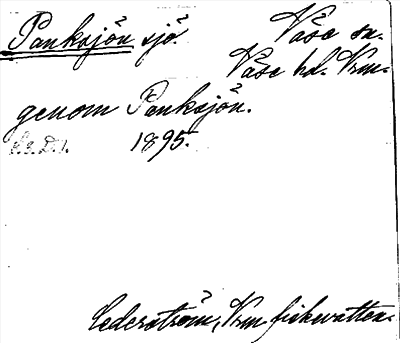 Panksjön sjö.
Väse sn.
Väse hd. Vrm.
genom Panksjön.
1895.
Cederström, Vrm fiskevatten.